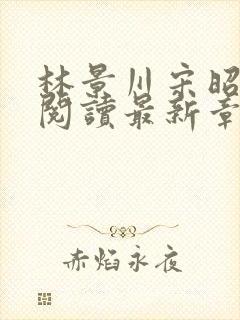 林景川宋昭
閱讀最新章
赤焰永夜